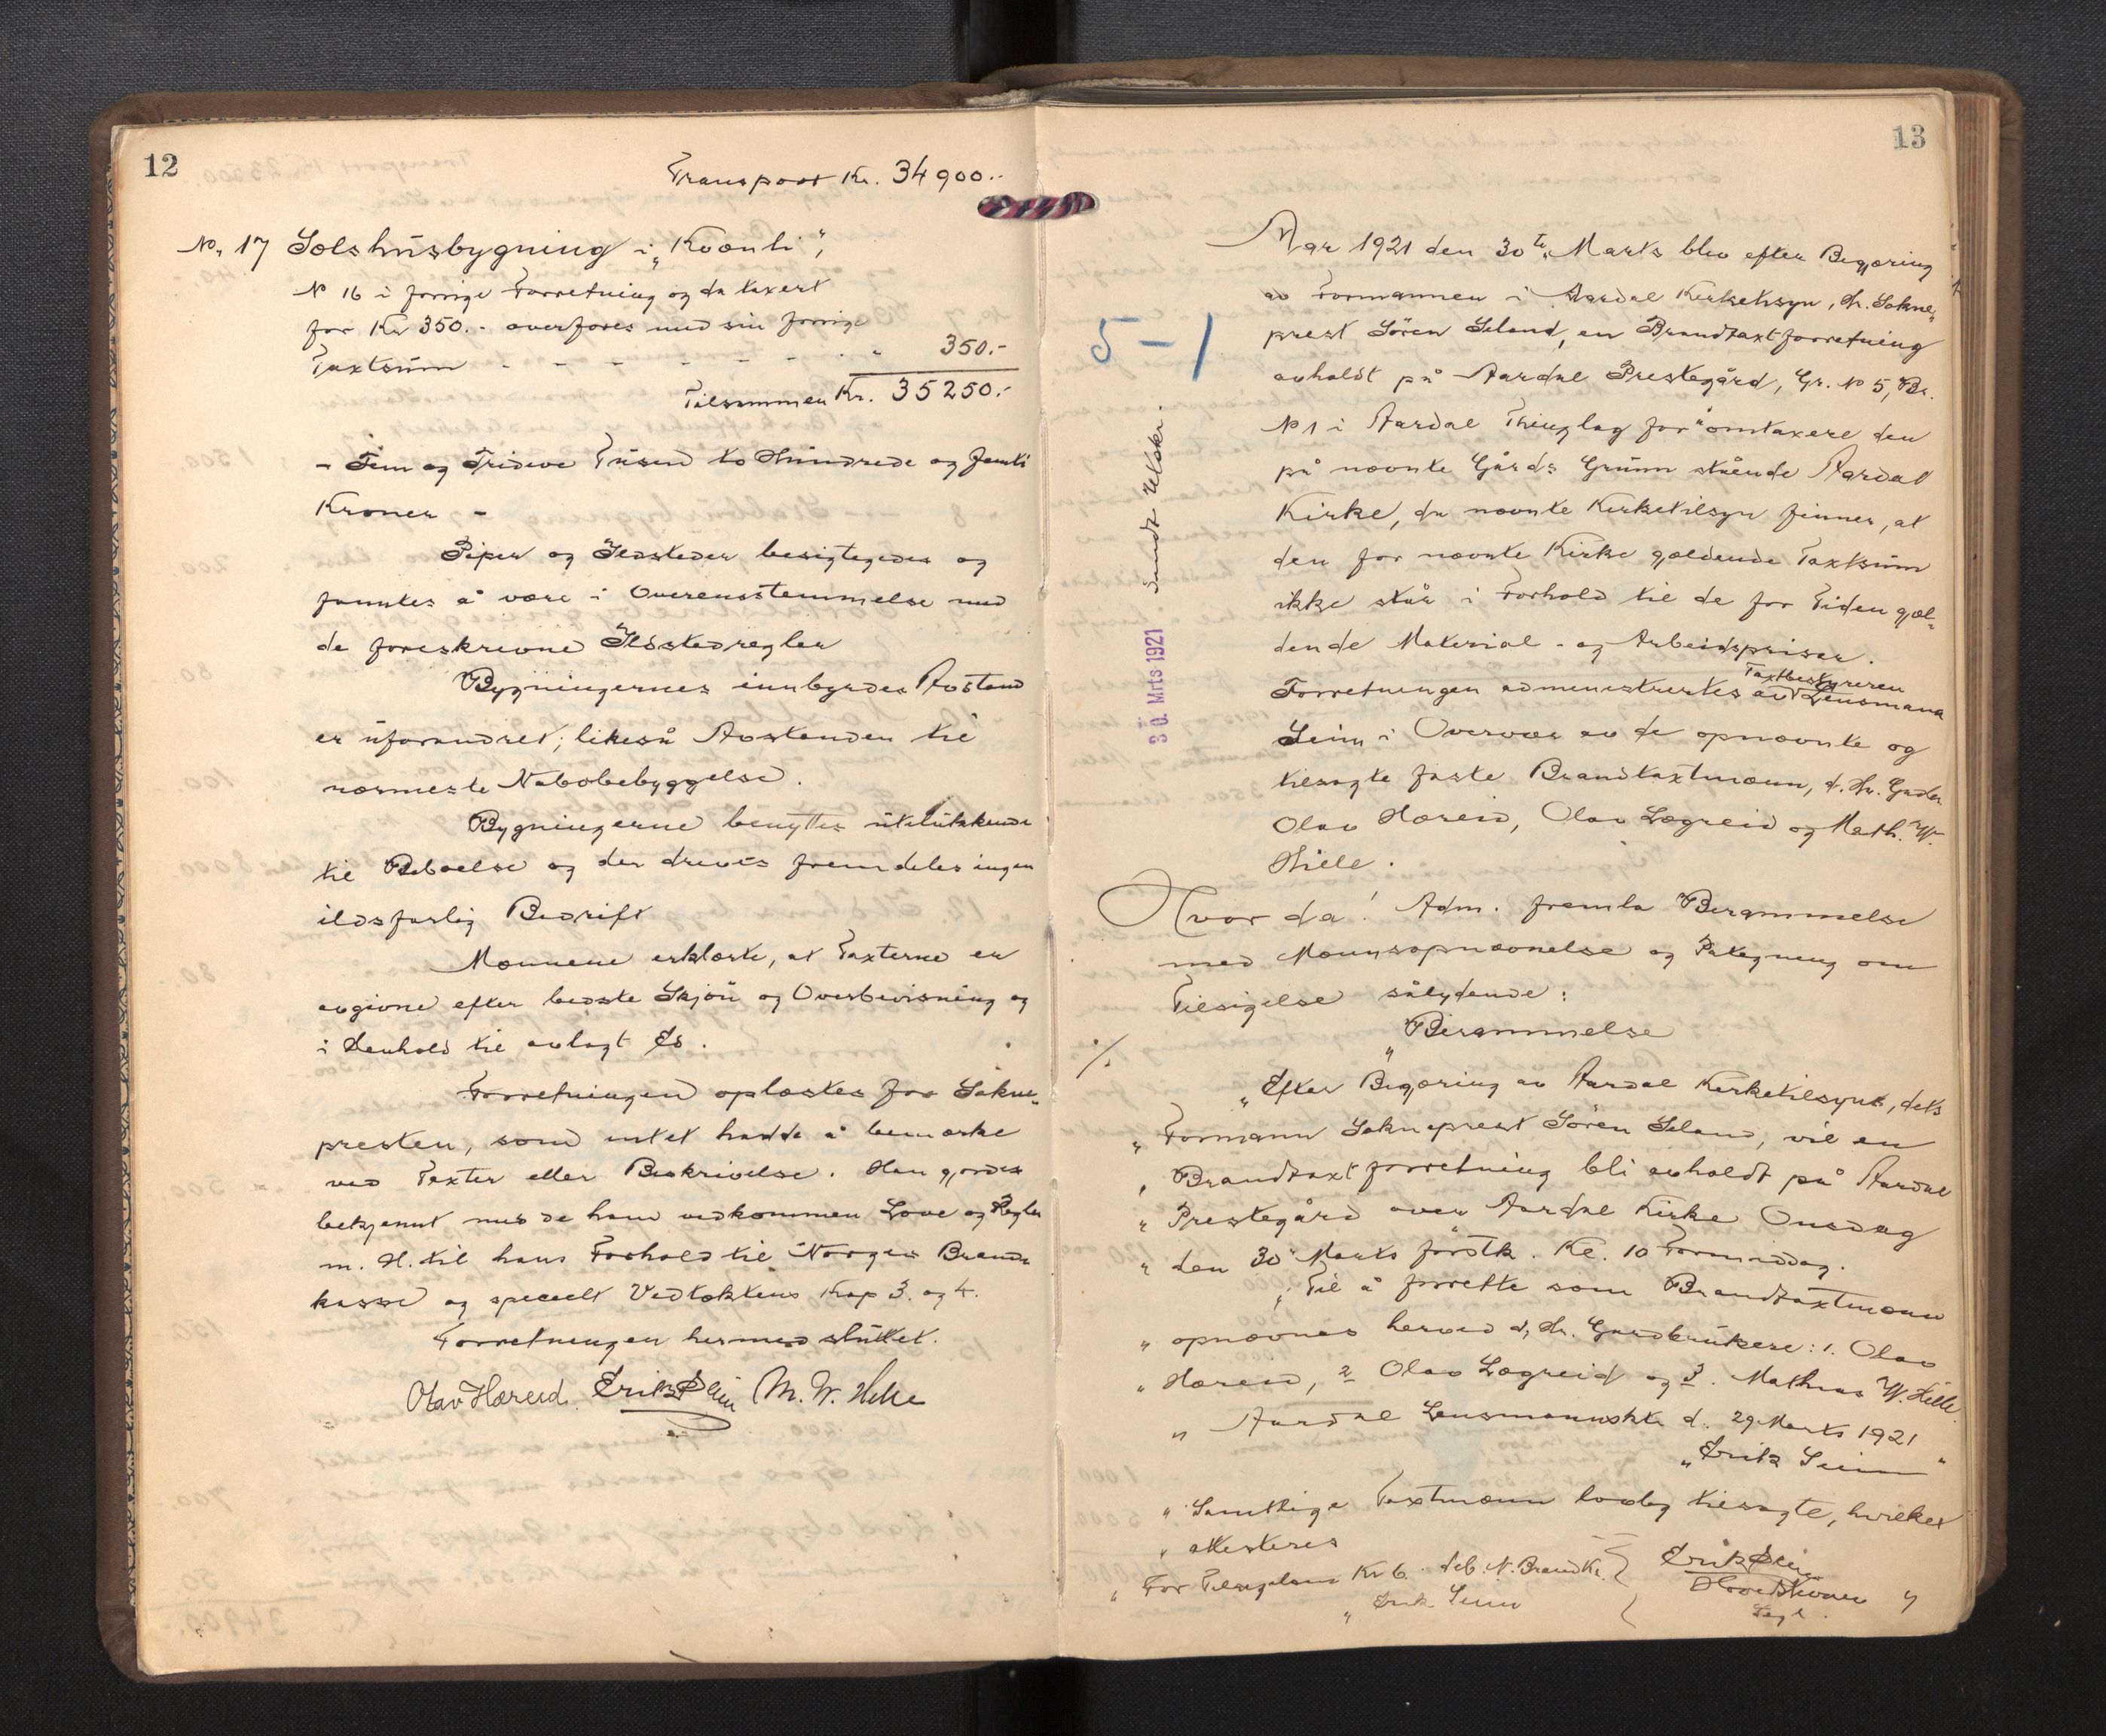 12
Transport Kr. 34900.-
No. 17 Selshusbygning i „Kvanli“,
No 16 i forrige Forretning og da taxert
for Kr 350.- overføres med sin forrige
Taxtsum - - - - - - - „ 350.-
Tilsammen Kr. 35250.-
- Fem og Trideve Tusen to Hundrede og femti
Kroner -
Piper og Ildsteder besigtegedes og
fanntes å være i Overensstemmelse med
de foreskrevne Ildstedregler
Bygningernes innbyrdes Avstand
er uforandret; likeså Avstanden til
nærmeste Nabobebyggelse.
Bygningerne benyttes utelukkende
til Beboelse og der drives fremdeles ingen
ildsfarlig Bedrift
Mænnene erklærte, at Taxterne er
avgivne efter bedste Skjøn og Overbevisning og
i Henhold til avlagt Ed.
Forretningen oplæstes for Sokne-
presten, som intet hadde å bemærke
ved Taxter eller Beskrivelse. Han gjordes
bekjennt med de ham vedkommen Love og Regler
m. H. til hans Forhold til Norges Brand-
kasse og specielt Vedtektens Kap 3. og 4.
Forretningen hermed sluttet.
Olav Hæreid. Erik Seim M. W. Hille
13
5 - 1
30. Mrts 1921. Sendt Utskr.
Aar 1921 den 30te Marts blev efter Begjæring
av Formannen i Aardal Kirketilsyn, Hr. Sokne-
prest Sören Seland, en Brandtaxtforretning
avholdt på Aardal Prestegård, Gr. No 5, Br.
No 1 i Aardal Thinglag for å omtaxere den
på nævnte Gårds Grunn stående Aardal
Kirke, da nævnte Kirketilsyn finner, at
den for nævnte Kirke gjældende Taxtsum
ikke står i Forhold til de for Tiden gjæl-
dende Material- og Arbeidspriser.
Taxtbestyreren
Forretningen administrertes av Lensmann
Seim i Overvær av de opnævnte og
tilsagte faste Brandtaxtmænn, d. Hr. Gardbr.
Olav Hæreid, Olav Lægreid og Math. W.
Hille.
Hvor da! Adm. fremla Berammelse
med Mannsopnævnelse og Påtegning om
Tilsigelse sålydende:
„Berammelse
./.
„Efter Begjæring av Aardal Kirketilsyns, dets
„Formann Sokneprest Sören Seland, vil en
„Brandtaxtforretning bli avholdt på Aardal
„Prestegård over Aardal Kirke Onsdag
„den 30 Marts førstk. Kl. 10 Formiddag.
„Til å forrette som Brandtaxtmænn
„opnævnes herved d, Hr. Gardbrukere: 1. Olav
„Hæreid, 2 Olav Lægreid og 3. Mathias W. Hille.
„Aardal Lensmannsktr d. 29 Marts 1921
„Erik Seim“
„Samtlige Taxtmænn lovlig tilsagte, hvilket
„attesteres
„For Tilsigelsen Kr 6. deb. N. Brandk.
„Erik Seim
Erik Seim